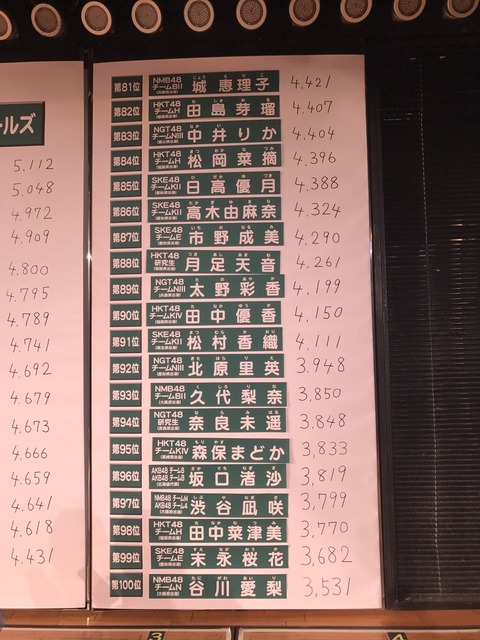 ールズ
5,112
5,048
4,972
4,909
4,800
4,795
4,789
4,741
4,692
4,679
4,673
4,666
4,659
4,641
4,618
4,431
第81位 NMB48 チームBII 城 恵理子 4,421
第82位 HKT48 チームH 田島芽瑠 4,407
第83位 NGT48 チームNIII 中井りか 4,404
第84位 HKT48 チームH 松岡菜摘 4,396
第85位 SKE48 チームKII 日高優月 4,388
第86位 SKE48 チームKII 高木由麻奈 4,324
第87位 SKE48 チームE 市野成美 4,290
第88位 HKT48 研究生 月足天音 4,261
第89位 NGT48 チームNIII 太野彩香 4,199
第90位 HKT48 チームKIV 田中優香 4,150
第91位 SKE48 チームKII 松村香織 4,111
第92位 NGT48 チームNIII 北原里英 3,948
第93位 NMB48 チームBII 久代梨奈 3,850
第94位 NGT48 研究生 奈良未遥 3,848
第95位 HKT48 チームKIV 森保まどか 3,833
第96位 坂口渚沙 3,819
第97位 渋谷凪咲 3,799
第98位 HKT48 チームH 田中菜津美 3,770
第99位 SKE48 チームE 末永桜花 3,682
第100位 NMB48 チームN 谷川愛梨 3,531
3